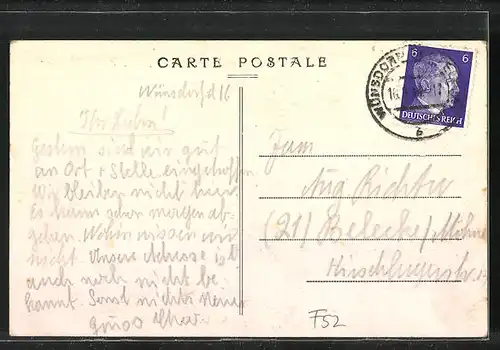 CARTE POSTALE
6 6
DEUTSCHES REICH
WÜNSDORF
16
b
Wünsdorf d 16
Ihr Lieben!
Gestern sind wir gut
an Ort + Stelle eingetroffen
Wir bleiben nicht hier
Es kann schon morgen ab-
gehen. Wohin wissen wir
nicht. Unsere Adresse ist
auch noch nicht be-
kannt. Sonst nichts Neues
Gruss
Zum
Aug Richter
(21) Belecke/Möhne
F52